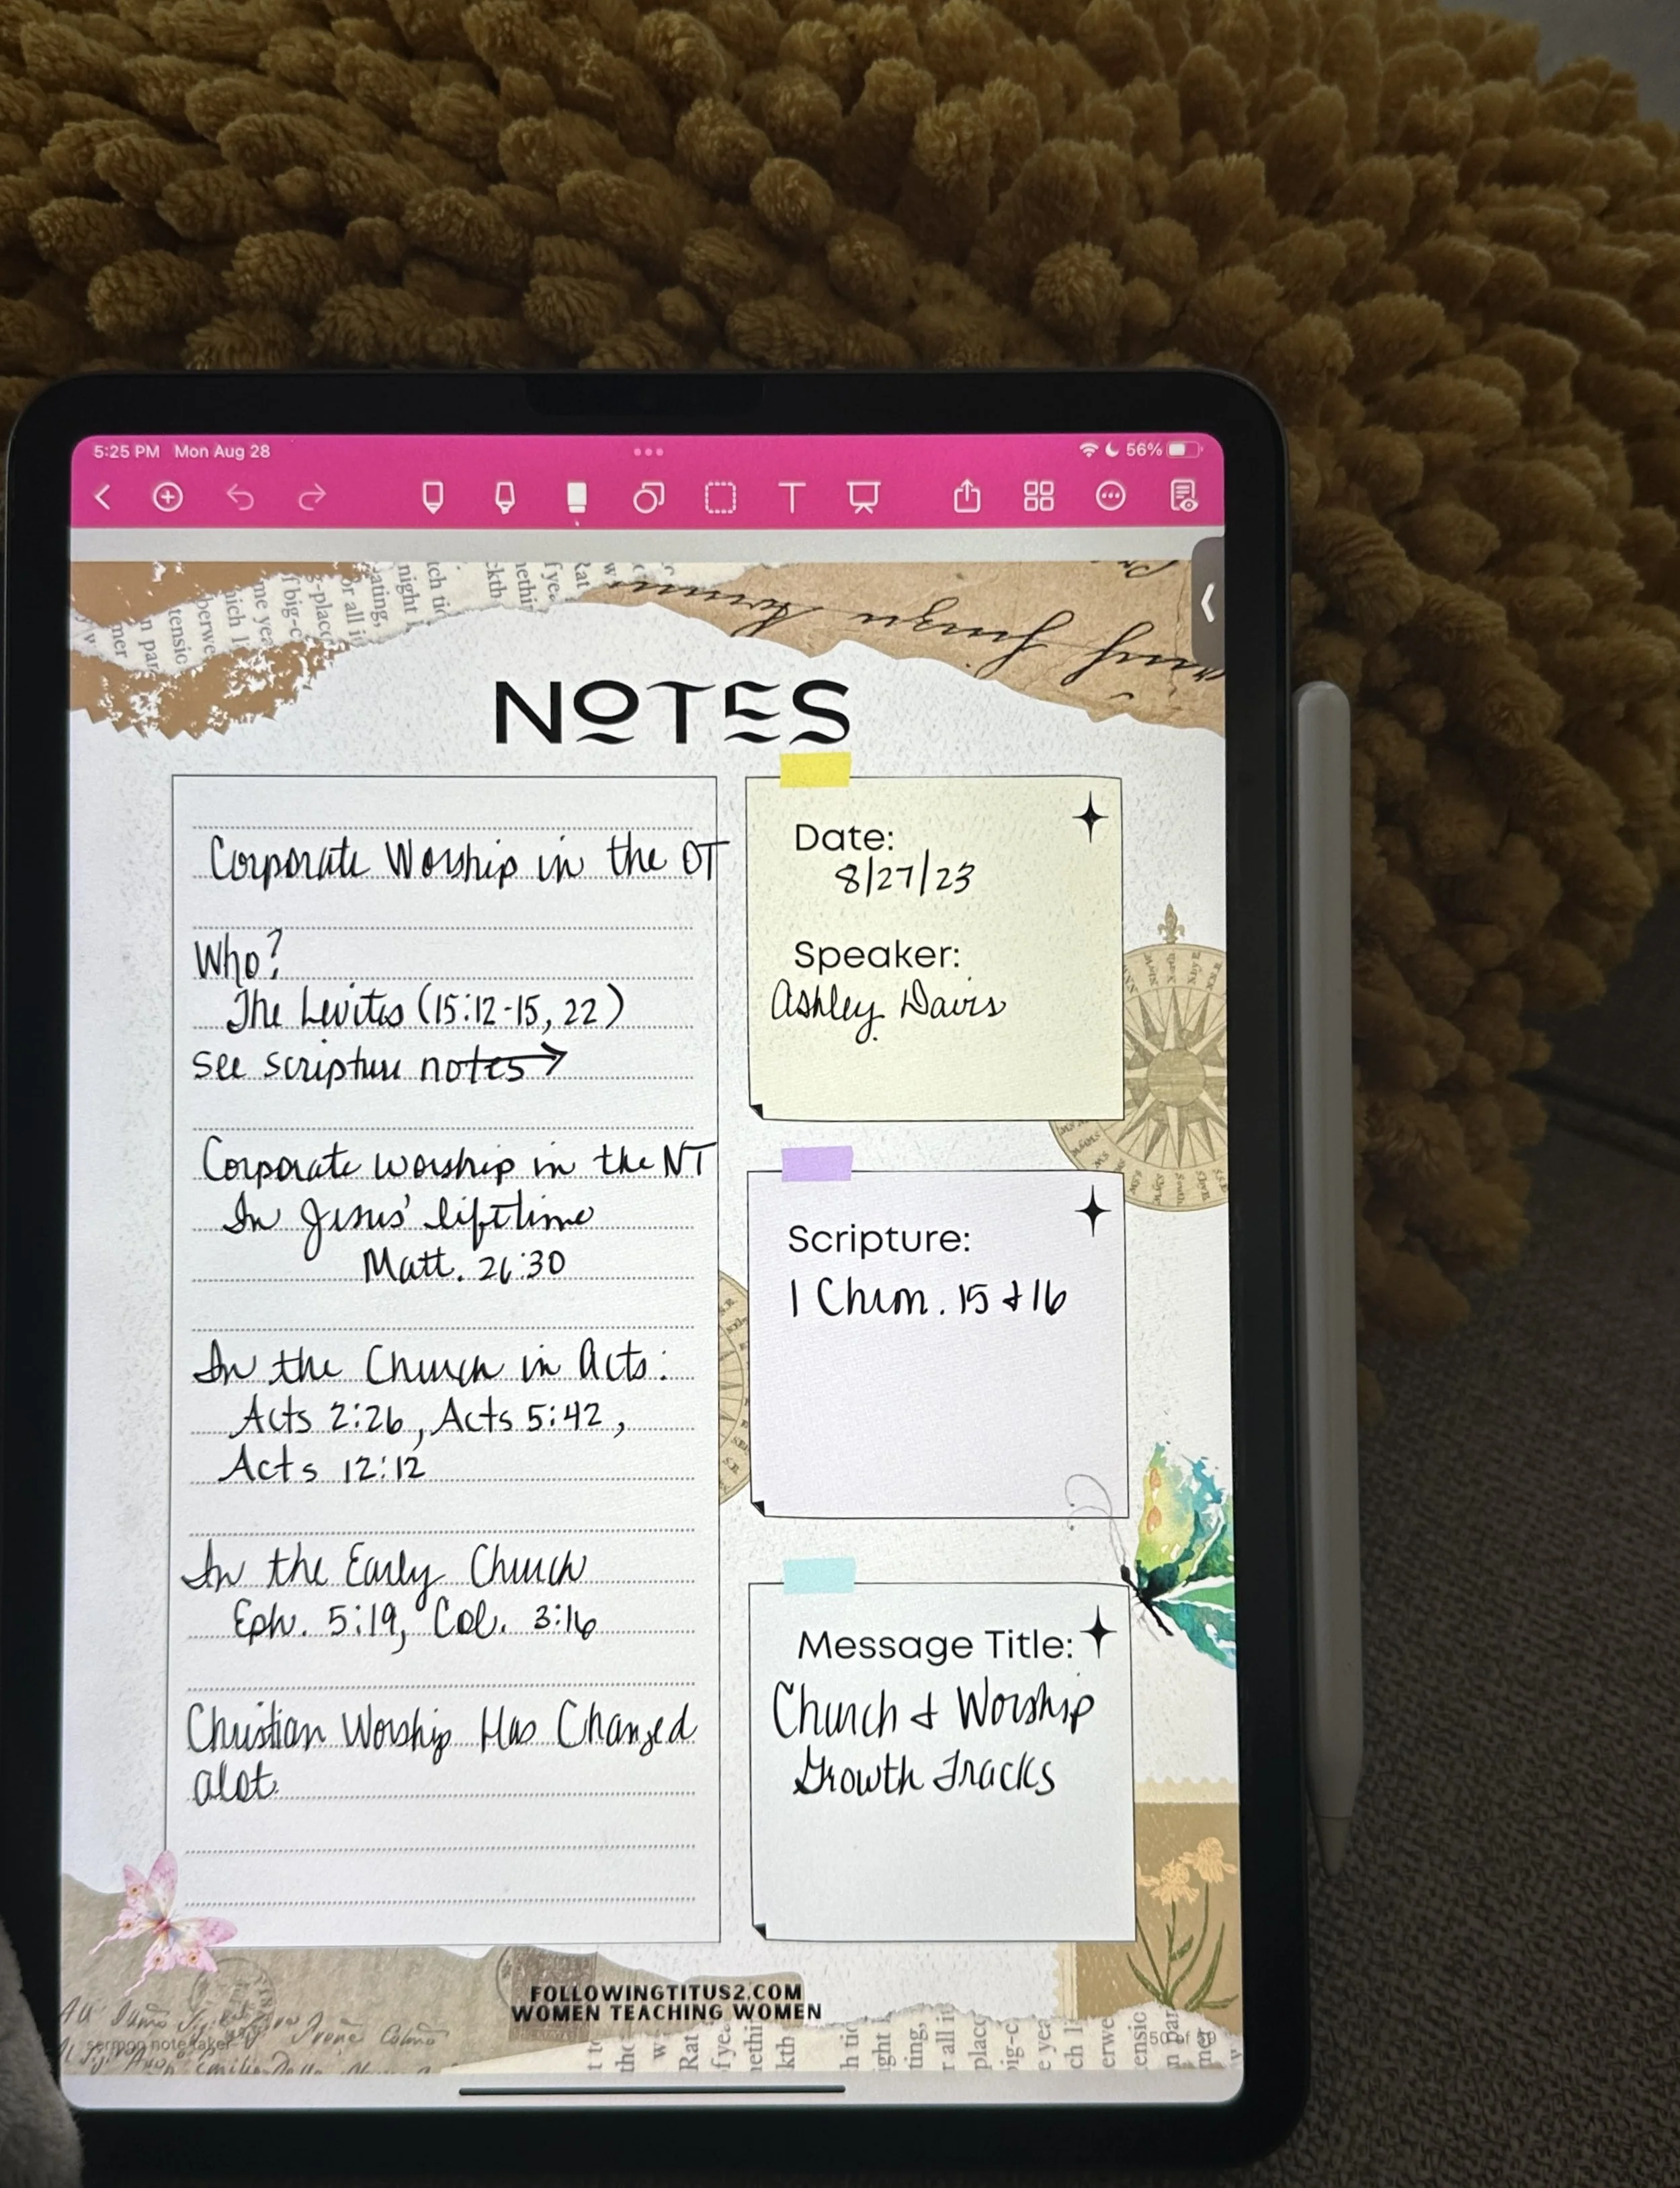 5:25 PM Mon Aug 28
56%
NOTES
Corporate Worship in the OT
Who?
The Levites (15:12-15, 22)
see scripture notes →
Corporate worship in the NT
In Jesus' lifetime
Matt. 26:30
In the Church in Acts:
Acts 2:26, Acts 5:42,
Acts 12:12
In the Early Church
Eph. 5:19, Col. 3:16
Christian Worship Has Changed
alot.
Date:
8/27/23
Speaker:
Ashley Davis
Scripture:
1 Chron. 15 & 16
Message Title:
Church & Worship
Growth Tracks
FOLLOWINGTITUS2.COM
WOMEN TEACHING WOMEN
sermon note taker